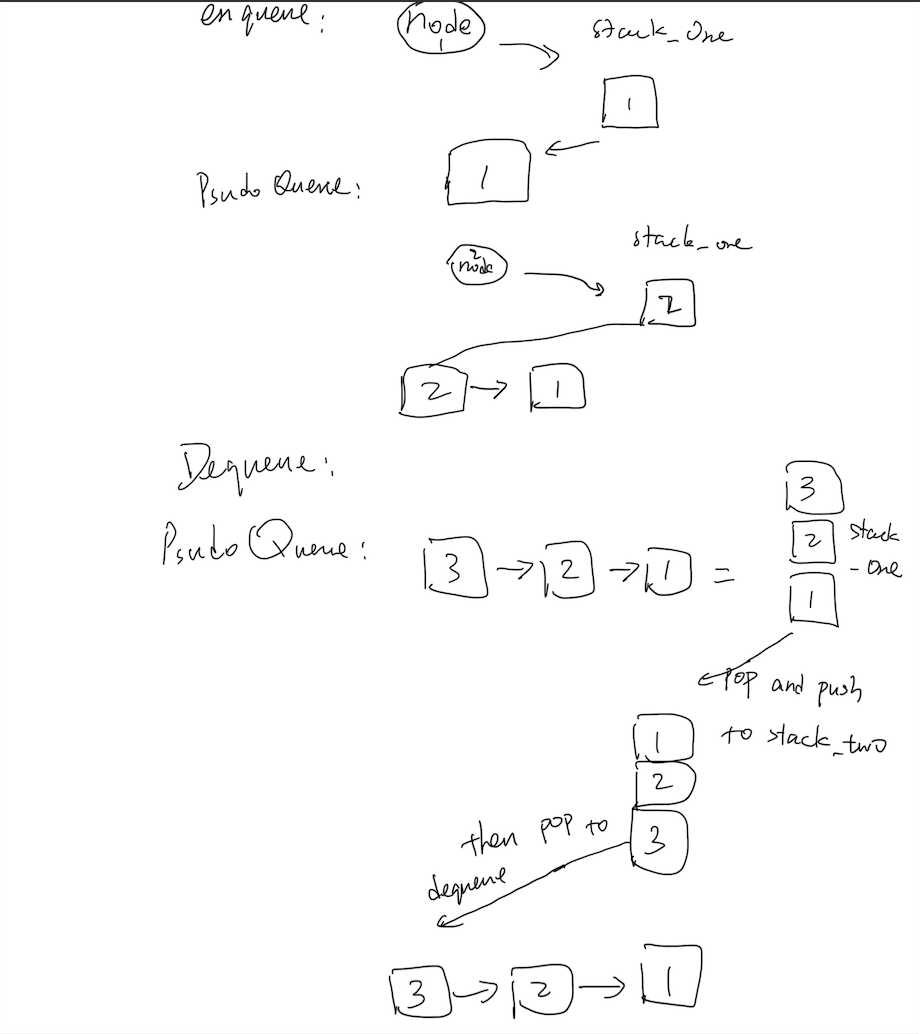 enqueue:
Node
1
stack_One
1
1
Psudo Queue:
stack_one
2
node
2
2 → 1
Dequeue:
3
Psudo Queue:
2
stack
- one
3 → 2 → 1 =
1
POP and push
to stack_two
1
2
then pop to
3
dequeue
3 → 2 → 1